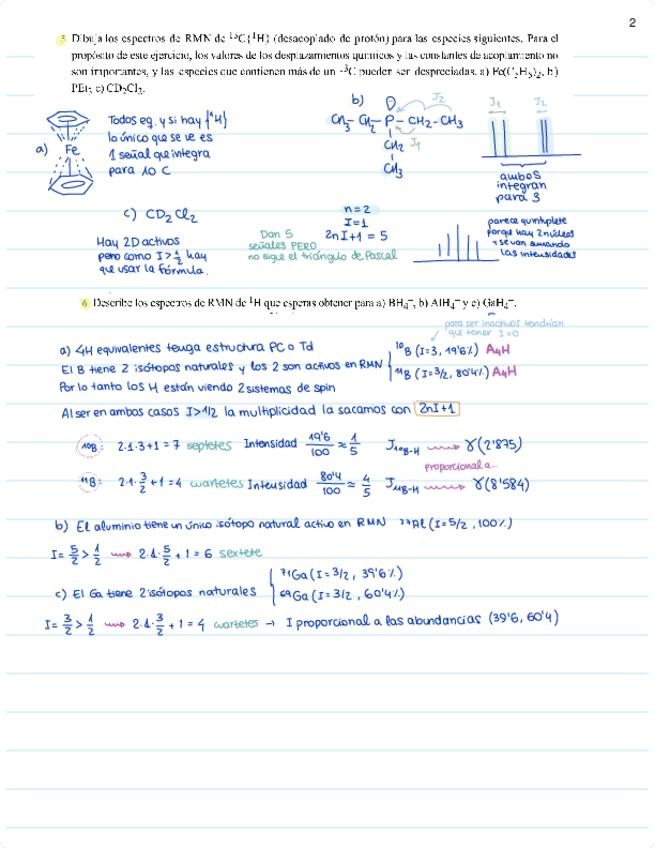 2
5 Dibuja los espectros de RMN de ¹³C{¹H} (desacoplado de protón) para las especies siguientes. Para el
propósito de este ejercicio, los valores de los desplazamientos químicos y las constantes de acoplamiento no
son importantes, y las especies que contienen más de un ¹³C pueden ser despreciadas. a) Fe(C₅H₅)₂, b)
PEt₃ c) CD₂Cl₂.
a) Fe
Todos eq. y si hay {¹H}
lo único que se ve es
1 señal que integra
para 10 C
b)
CH₃-CH₂-P-CH₂-CH₃
CH₂
CH₃
J₂
J₁
J₁ J₂
ambos
integran
para 3
c) CD₂Cl₂
Hay 2D activos
pero como I>1/2 hay
que usar la fórmula.
n=2
I=1
2nI+1 = 5
Dan 5
señales PERO
no sigue el triángulo de Pascal
parece quintuplete
porque hay 2 núcleos
y se van sumando
las intensidades
6 Describe los espectros de RMN de ¹H que esperas obtener para a) BH₄⁻, b) AlH₄⁻ y c) GaH₄⁻.
para ser inactivos tendrían
que tener I=0
a) 4H equivalentes tenga estructura PC o Td
El B tiene 2 isótopos naturales y los 2 son activos en RMN
¹⁰B (I=3, 19'6%) A₄H
¹¹B (I=3/2, 80'4%) A₄H
Por lo tanto los H están viendo 2 sistemas de spin
Al ser en ambos casos I>1/2 la multiplicidad la sacamos con 2nI+1
¹⁰B: 2·1·3+1 = 7 septetes Intensidad 19'6/100 ≈ 1/5 J¹⁰B-H → γ(2'875)
proporcional a...
¹¹B: 2·1·3/2+1 = 4 cuartetes Intensidad 80'4/100 ≈ 4/5 J¹¹B-H → γ(8'584)
b) El aluminio tiene un único isótopo natural activo en RMN ²⁷Al (I=5/2, 100%)
I= 5/2 > 1/2 → 2·1·5/2+1 = 6 sextete
c) El Ga tiene 2 isótopos naturales
⁷¹Ga (I=3/2, 39'6%)
⁶⁹Ga (I=3/2, 60'4%)
I= 3/2 > 1/2 → 2·1·3/2+1 = 4 cuartetes → I proporcional a las abundancias (39'6, 60'4)